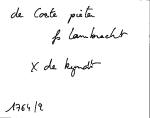 de Coste pieter
fs Lambrecht
X de Kyndt
1764/2